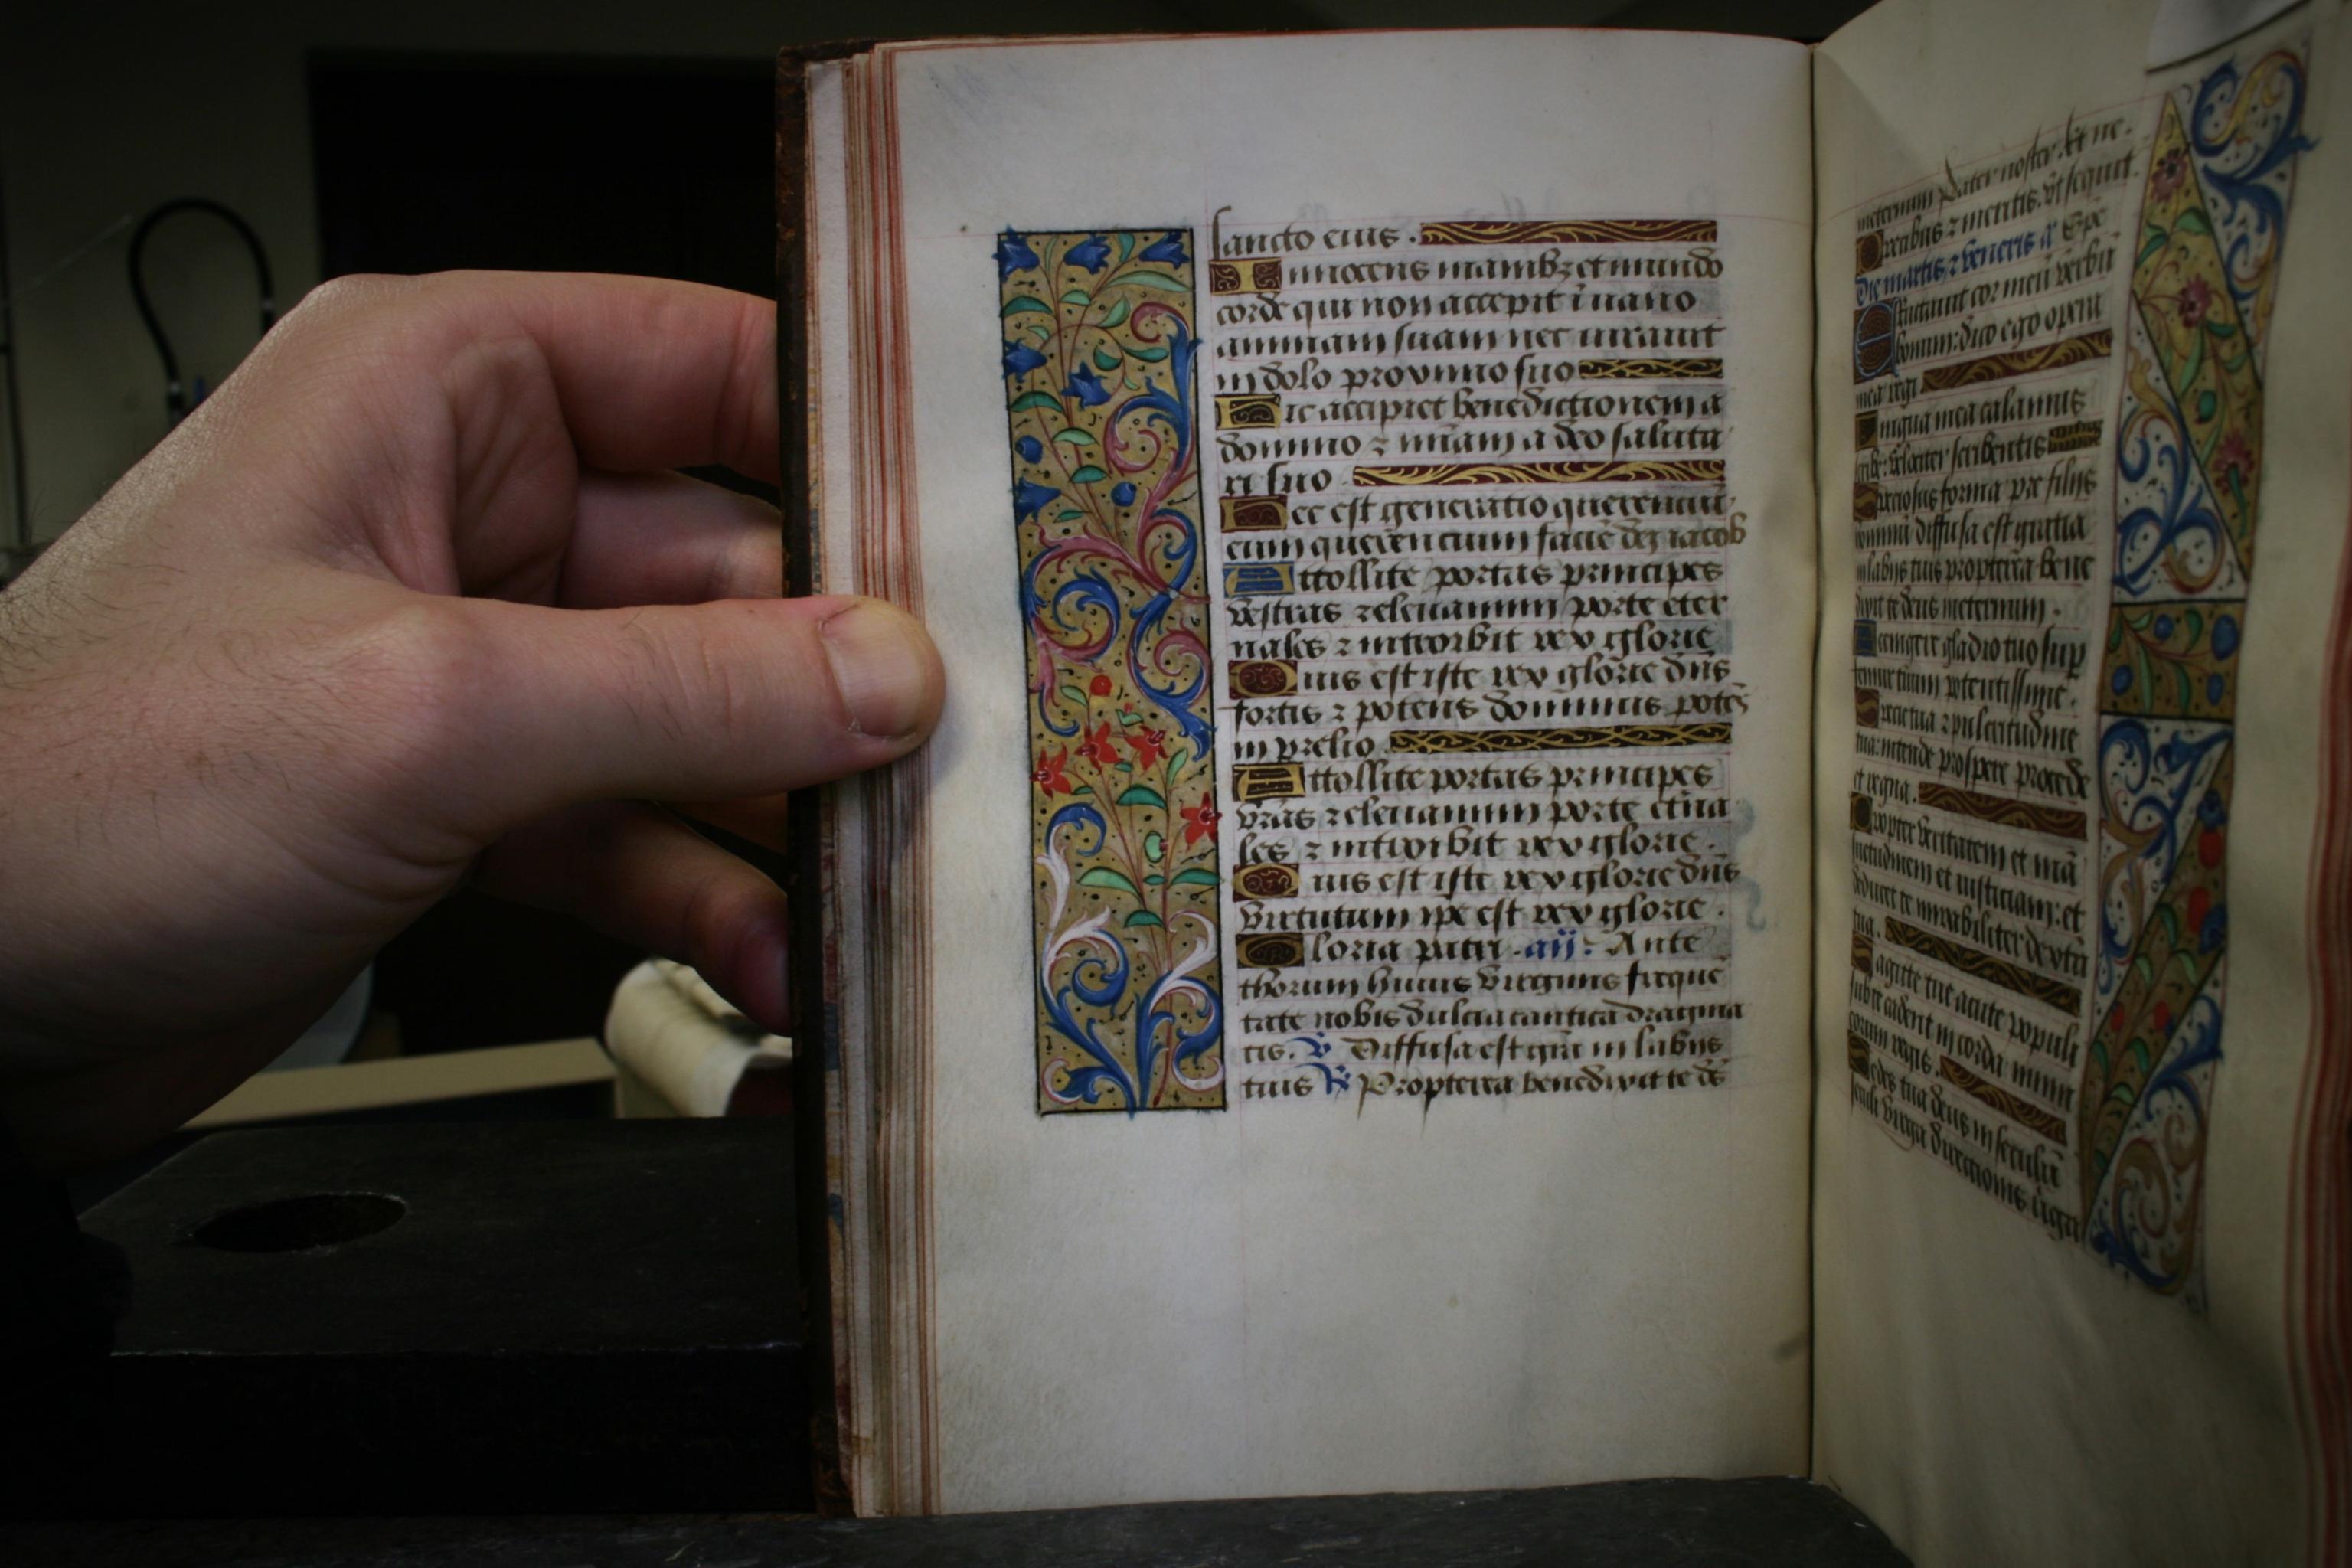 sancto eius.
Innocens manibz et mundo
corde qui non accepit i uano
animam suam nec iurauit
in dolo proximo suo
Hic accipiet benedictionem a
domino ⁊ miam a deo saluta
ri suo.
Hec est generatio querentiū
eum querentium facie dei iacob
Attollite portas principes
vestras ⁊ eleuamini porte eter
nales ⁊ introibit rex glorie
Quis est iste rex glorie dn̄s
fortis ⁊ potens dominus potēs
in prelio.
Attollite portas principes
vr̄as ⁊ eleuamini porte et̄na
les ⁊ introibit rex glorie.
Quis est iste rex glorie dn̄s
virtutum ipe est rex glorie.
Gloria patri. an̄: Ante
thorum huius virginis freque
tate nobis dulcia cantica dragma
tis. ℣ Diffusa est gr̄a in labiis
tuis ℟ Propterea benedixit te ds̄
meternum Pater noster. Et ne.
Precibus ⁊ meritis. vt sequit.
Die martis ⁊ veneris a Spe
Eructauit cor meū verbū
bonum: dico ego opera
mea regi
Lingua mea calamus
scribe: velociter scribentis
Speciosus forma pre filiis
hominū diffusa est gratia
in labiis tuis propterea bene
dixit te deus meternum.
Accingere gladio tuo sup
femur tuum potentissime.
Specie tua ⁊ pulcritudine
tua: intende prospere procede
et regna.
Propter veritatem et mā
suetudinem et iusticiam: et
deducet te mirabiliter dextā
tua.
Sagitte tue acute populi
sub te cadent in corda inimi
corum regis.
Sedes tua deus in seculū
seculi virga directionis uirga